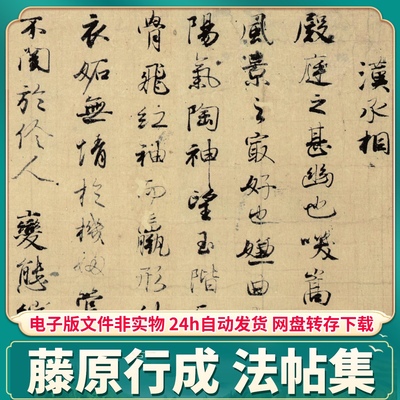 漢丞相
殿庭之甚幽也嗟嵩
風景之㝡好也嫌曲
陽氣陶神望玉階
飛紅袖而羸形
衣妬無情於機婦
不關於伶人 變態
电子版文件非实物 24h自动发货 网盘转存下载
藤原行成 法帖集